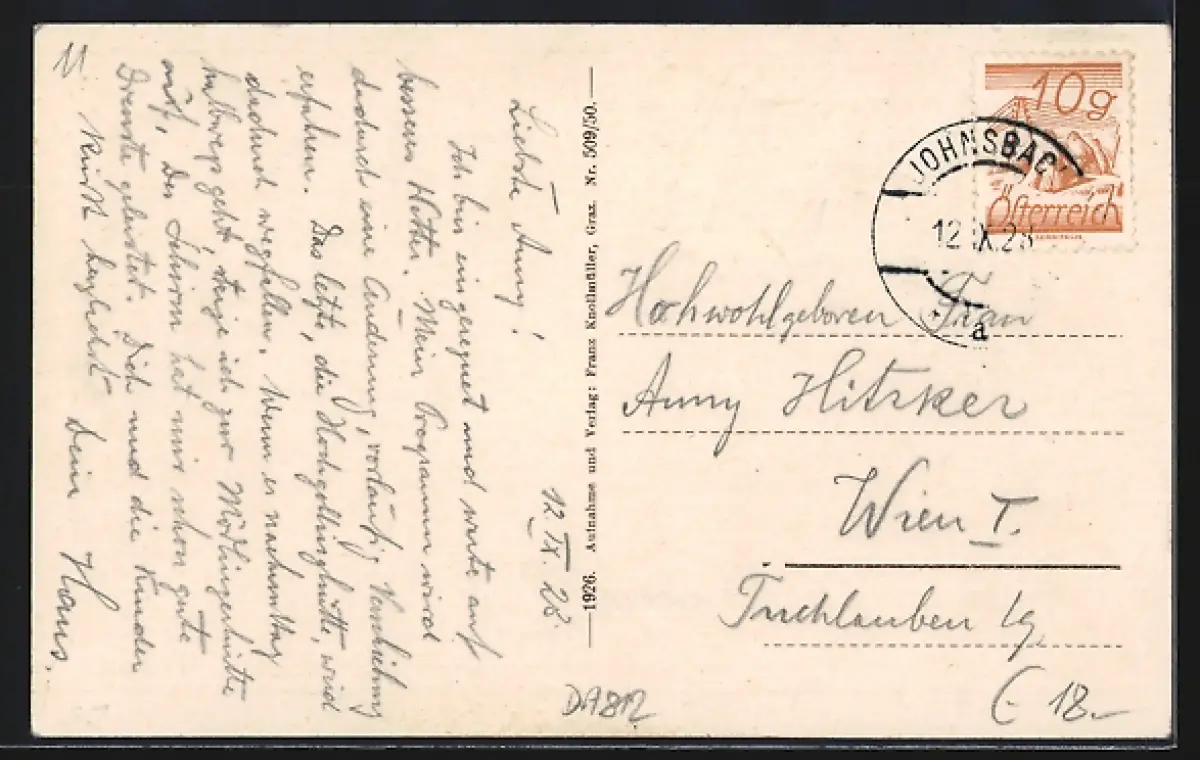 11
12. IX. 28.
Liebste Anny!
Ich bin eingeregnet und warte auf
besseres Wetter. Mein Programm wird
dadurch eine Änderung, vorläufig Verschiebung
erfahren. Das letzte, die Hochgollinghütte, wird
dadurch wegfallen. Wenn es nachmittag
halbwegs geht, steige ich zur Mödlingerhütte
auf. Der Schirm hat mir schon gute
Dienste geleistet. Dich und die Kinder
küsst herzlichst Dein Hans.
—1926. Aufnahme und Verlag: Franz Knollmüller, Graz. Nr. 509/50.—
10g
Österreich
JOHNSBACH
12. IX. 28
a
Hochwohlgeboren Frau
Anny Hitzker
Wien I.
Tuchlauben 19.
DA812
18.-